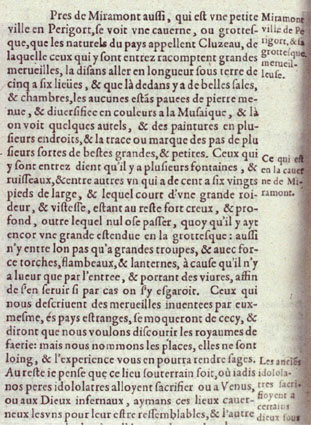 Pres de Miramont aussi, qui est vne petite
ville en Perigort, se voit vne cauerne, ou grottes-
que, que les naturels du pays appellent Cluzeau, de
laquelle ceux qui y sont entrez racomptent grandes
merueilles, la disans aller en longueur sous terre de
cinq a six lieües, & que là dedans y a de belles sales,
& chambres, les aucunes estãs pauees de pierre me-
nue, & diuersifiee en couleurs a la Musaique, & là
on voit quelques autels, & des paintures en plu-
sieurs endroits, & la trace ou marque des pas de plu
sieurs sortes de bestes grandes, & petites. Ceux qui
y sont entrez dient qu'il y a plusieurs fontaines, &
ruisseaux, & entre autres vn qui a de cent a six vingts
pieds de large, & lequel court d'vne grande roi-
deur, & vistesse, estant au reste fort creux, & pro-
fond, outre lequel nul ose passer, quoy qu'il y ayt
encor vne grande estendue en la grottesque: aussi
n'y entre lon pas qu'a grandes troupes, & auec for-
ce torches, flambeaux, & lanternes, à cause qu'il n'y
a lueur que par l'entree, & portant des viures, affin
de s'en seruir si par cas on s'y esgaroit. Ceux qui
nous descriuent des merueilles inuentees par eux-
mesme, és pays estranges, se moqueront de cecy, &
diront que nous voulons discourir les royaumes de
faerie: mais nous nommons les places, elles ne sont
loing, & l'experience vous en pourra rendre sages.
Au reste ie pense que ce lieu souterrain soit, où iadis
nos peres idololatres alloyent sacrifier ou a Venus,
ou aux Dieux infernaux, aymans ces lieux cauer-
neux les vns pour leur estre ressemblables, & l'autre
Miramont
ville de Pe
rigort, & sa
grottesque
merueil-
leuse.
Ce qui est
en la cauer
ne de Mi-
ramont.
Les anciẽs
idolola-
tres sacri-
fioyent a
certains
dieux sous